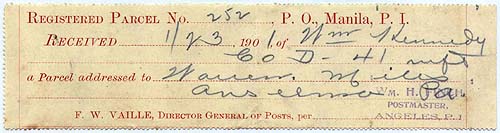 REGISTERED PARCEL NO. 252, P. O., MANILA, P. I.
RECEIVED 1/23, 1901 of Wm Kennedy
Co D - 41
a Parcel addressed to Warren. Mills
Anselmo Pa
WM. H.
POSTMASTER,
ANGELES, P. I
F. W. VAILLE, DIRECTOR GENERAL OF POSTS, per